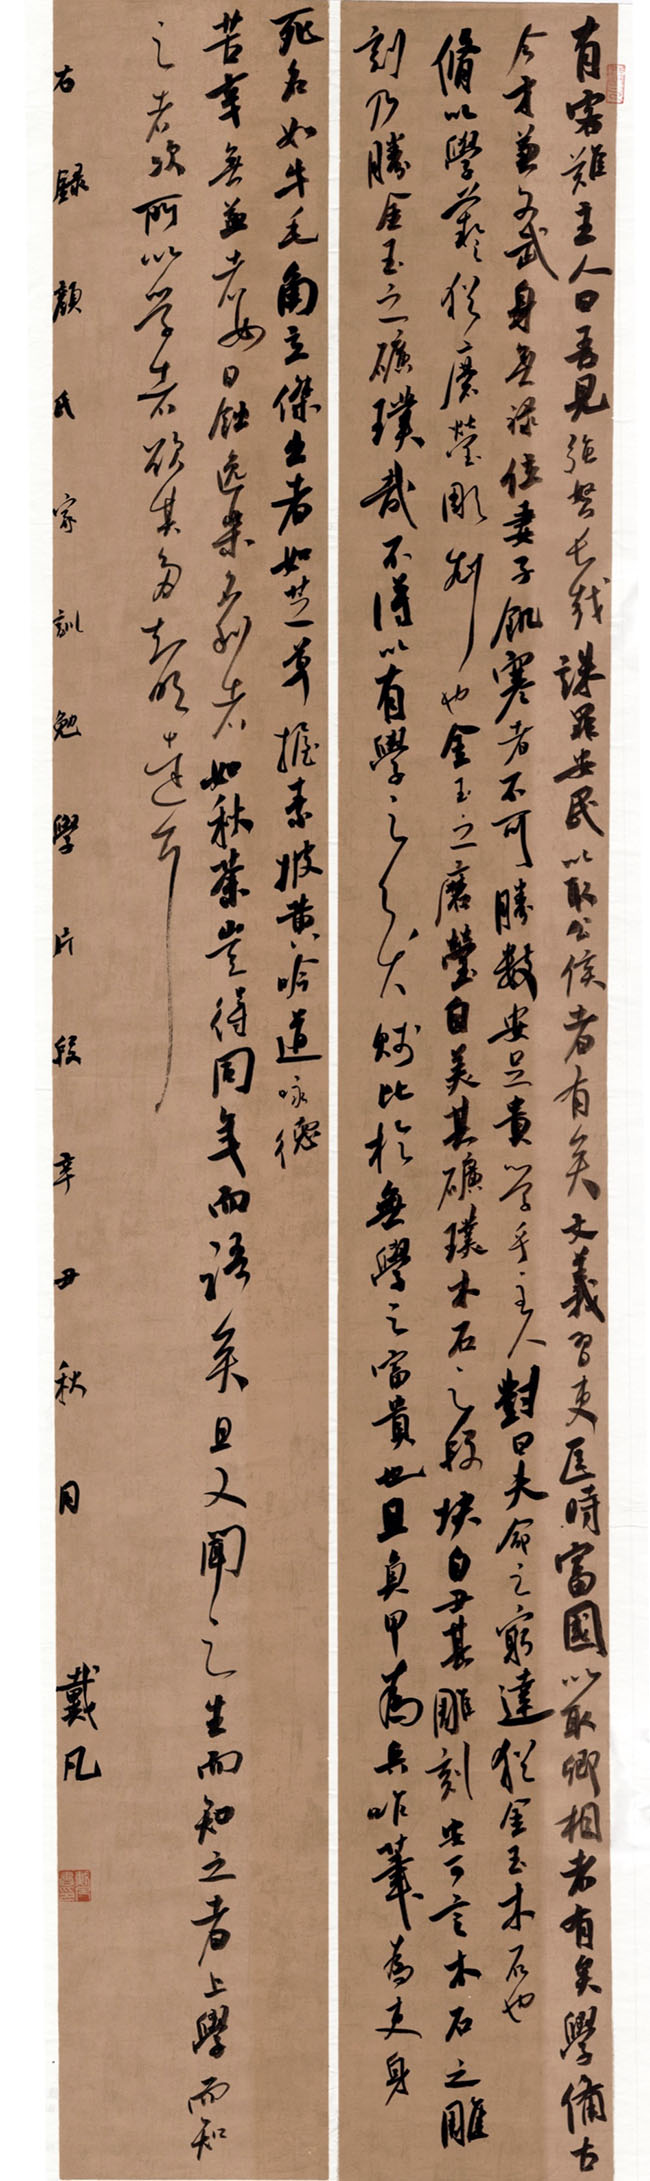 有客難主人曰吾見強弩長戟誅罪安民以取公侯者有矣文義習吏匡時富國以取卿相者有矣學備古
今才兼文武身無祿位妻子飢寒者不可勝數安足貴學乎主人對曰夫命之窮達猶金玉木石也
脩以學藝猶磨瑩彫刻也金玉之磨瑩自美其礦璞木石之段塊自丑其雕刻安可言木石之雕
刻乃勝金玉之礦璞哉不得以有學之貧賤比於無學之富貴也且負甲為兵咋筆為吏身
死名如牛毛角立傑出者如芝草握素披黃吟道咏德
苦辛無益者如日蝕逸樂名利者如秋荼豈得同年而語矣且又聞之生而知之者上學而知
之者次所以學者欲其多知明達耳
右錄顏氏家訓勉學片段辛丑秋月 戴凡